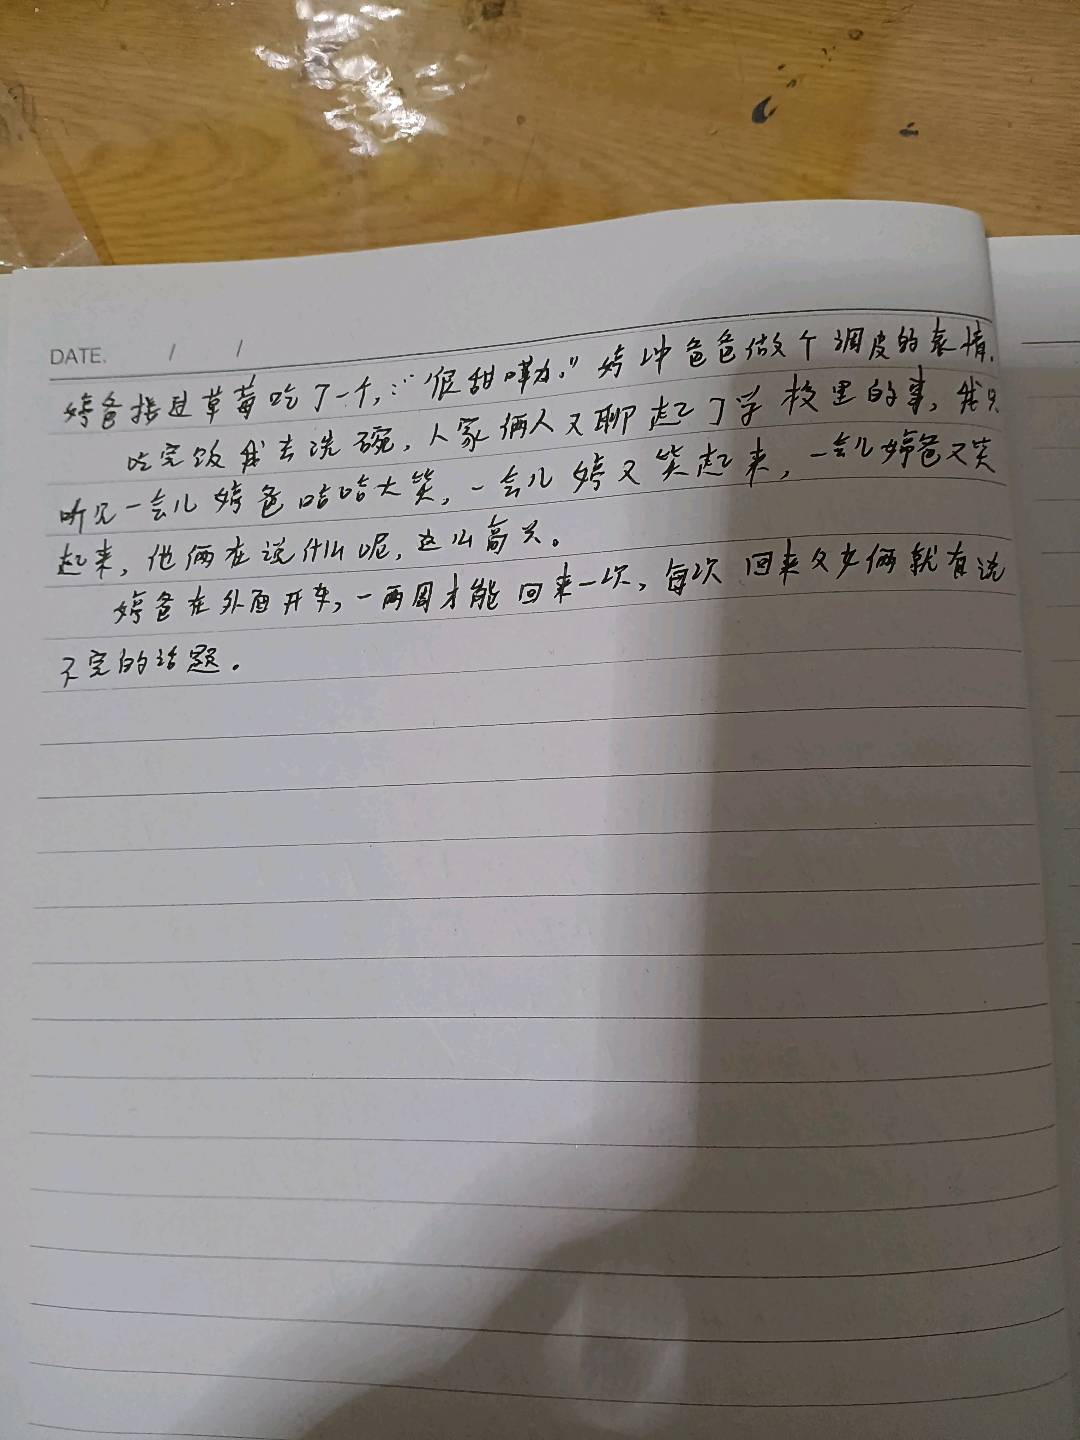 DATE. / /
婷爸接过草莓吃了一个,:“很甜嘛。”婷冲爸爸做个调皮的表情.
吃完饭我去洗碗,人家俩人又聊起了学校里的事,我只
听见一会儿婷爸哈哈大笑,一会儿婷又笑起来,一会儿婷爸又笑
起来,他俩在说什么呢,这么高兴。
婷爸在外面开车,一两周才能回来一次,每次回来父女俩就有说
不完的话题。